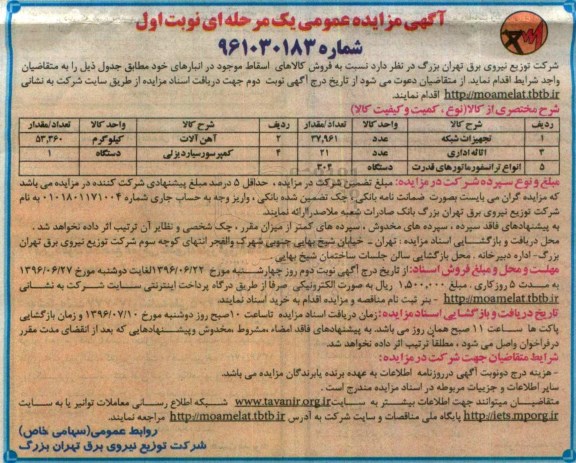 آگهی مزایده عمومی یک مرحله ای نوبت اول
شماره ۹۶۱۰۳۰۱۸۳
شرکت توزیع نیروی برق تهران بزرگ در نظر دارد نسبت به فروش کالاهای اسقاط موجود در انبارهای خود مطابق جدول ذیل را به متقاضیان
واجد شرایط اقدام نماید. از متقاضیان دعوت می شود از تاریخ درج آگهی نوبت دوم جهت دریافت اسناد مزایده از طریق سایت شرکت به نشانی
http://moamelat.tbtb.ir اقدام نمایند.
شرح مختصری از کالا(نوع ، کمیت و کیفیت کالا)
ردیف شرح کالا واحد کالا تعداد/مقدار ردیف شرح کالا واحد کالا تعداد/مقدار
۱ تجهیزات شبکه عدد ۳۷,۹۶۱ ۲ آهن آلات کیلوگرم ۵۳,۳۶۰
۳ اثاثه اداری عدد ۲۱ ۴ کمپرسور سیار دیزلی دستگاه ۱
۵ انواع ترانسفورماتورهای قدرت دستگاه
مبلغ و نوع سپرده شرکت در مزایده: مبلغ تضمین شرکت در مزایده ، حداقل ۵ درصد مبلغ پیشنهادی شرکت کننده در مزایده می باشد
که مزایده گران می بایست بصورت ضمانت نامه بانکی، چک تضمین شده بانکی ، واریز وجه به حساب جاری شماره ۰۱۰۱۸۰۱۱۷۱۰۰۴ به نام
شرکت توزیع نیروی برق تهران بزرگ بانک صادرات شعبه ملاصدرا ارائه نمایند.
به پیشنهادهای فاقد سپرده ، سپرده های مخدوش ، سپرده های کمتر از میزان مقرر ، چک شخصی و نظایر آن ترتیب اثر داده نخواهد شد .
محل دریافت و بازگشایی اسناد مزایده : تهران - خیابان شیخ بهایی جنوبی شهرک والفجر انتهای کوچه سوم شرکت توزیع نیروی برق تهران
بزرگ - اداره دبیرخانه . محل بازگشایی سالن جلسات ساختمان شیخ بهایی .
مهلت و محل و مبلغ فروش اسناد: از تاریخ درج آگهی نوبت دوم روز چهارشنبه مورخ ۱۳۹۶/۰۶/۲۲ لغایت دوشنبه مورخ ۱۳۹۶/۰۶/۲۷
به مدت ۵ روز کاری ، مبلغ ۱,۵۰۰,۰۰۰ ریال به صورت الکترونیکی صرفا از طریق درگاه پرداخت اینترنتی سایت شرکت به نشانی
http://moamelat.tbtb.ir - بنر ثبت نام مناقصه و مزایده اقدام به خرید اسناد نمایند.
تاریخ دریافت و بازگشایی اسناد مزایده: زمان دریافت اسناد مزایده تا ساعت ۱۰ صبح روز دوشنبه مورخ ۱۳۹۶/۰۷/۱۰ و زمان بازگشایی
پاکت ها ساعت ۱۱ صبح همان روز می باشد. به پیشنهادهای فاقد امضاء ،مشروط ،مخدوش و پیشنهادهایی که بعد از انقضای مدت مقرر
در فراخوان واصل می شود ، مطلقا ترتیب اثر داده نخواهد شد.
شرایط متقاضیان جهت شرکت در مزایده:
- هزینه درج دو نوبت آگهی در روزنامه اطلاعات به عهده برنده یا برندگان مزایده می باشد.
سایر اطلاعات و جزییات مربوطه در اسناد مزایده مندرج است .
متقاضیان میتوانند جهت اطلاعات بیشتر به سایت www.tavanir.org.ir شبکه اطلاع رسانی معاملات توانیر یا به سایت
http://iets.mporg.ir پایگاه ملی مناقصات و سایت شرکت به آدرس http://moamelat.tbtb.ir مراجعه نمایند.
روابط عمومی(سهامی خاص)
شرکت توزیع نیروی برق تهران بزرگ